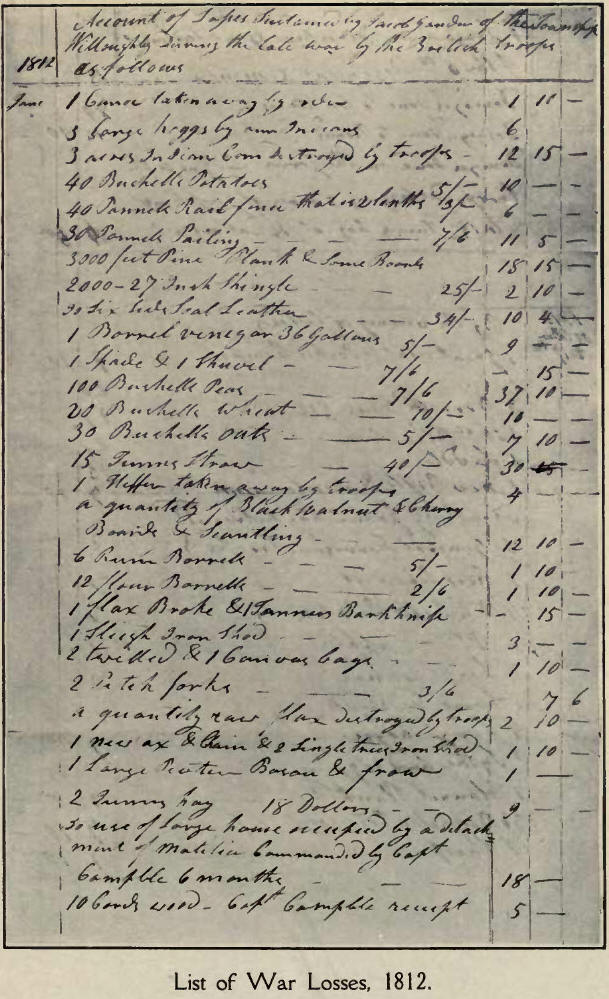 Account of Loses Sustained by Jacob Gander of the Township
Willoughby During the late war by the British troops
1812 as follows
June 1 Canoe taken away by order 1 10 —
3 large hoggs by our Indians 6
3 acres Indian Corn destroyed by troops - 12 15 —
40 Buchells Potatoes 5/- 10 — —
40 Pannels Rail fence that is 2 lenths 3/- 6 — —
30 Pannels Pailing — — — 7/6 11 5 —
3000 feet Pine Plank & Some Boards 18 15 —
2000 - 27 Inch Shingle - — 25/- 2 10 —
To Six Sides Soal Leather 34/- 10 4 —
1 Borrel vinegar 36 Gallons 5/- 9 — —
1 Spade & 1 Shuvel - — 7/6 15 —
100 Buchells Peas - — — 7/6 37 10 —
20 Buchells wheat — — 10/- 10 — —
30 Buchells oats - — — 5/- 7 10 —
15 Tunns Straw — 40/- 30 —
1 Heffer taken away by troops 4 — —
a quantity of Black walnut & Cherry
Boards & Scantling - — 12 10 —
6 Rum Borrels - - — 5/- 1 10 —
12 flour Borrells - — 2/6 1 10 —
1 flax Broke & 1 Tanners Bark knife - - 15 —
1 Sleigh Iron Shod - - 3 — —
2 twilled & 1 Canvas bags - - 1 10 —
2 Pitch forks - — 3/6 7 6
a quantity raw flax destroyed by troops 2 10 —
1 new ax & Chain & 2 Singletrees Iron Shod 1 10 —
1 Large Pewter Bason & frow 1 —
2 Tunns hay 18 Dollars - - 9 - —
To use of large house occupied by a detach
ment of Malitia Commanded by Capt
Cample 6 months - - — 18 —
10 Cords wood - Capt Cample receipt 5 —
List of War Losses, 1812.